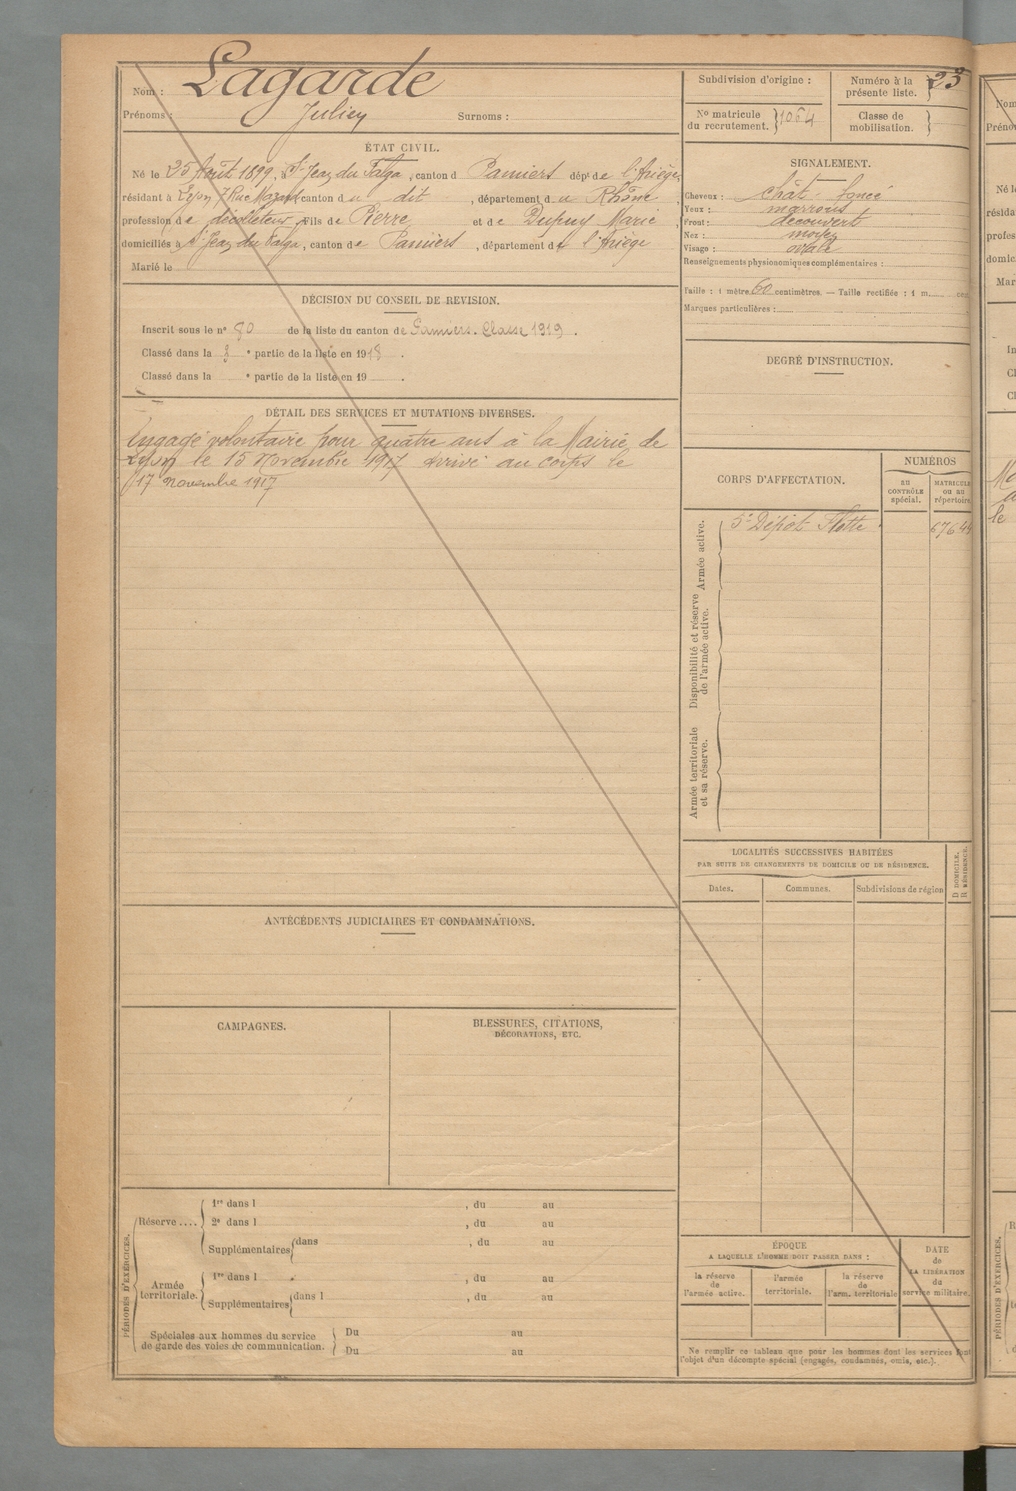 Nom : Lagarde
Prénoms : Julien Surnoms :
ÉTAT CIVIL.
Né le 25 Août 1899, à St Jean du Falga, canton d Pamiers dépt de l'Ariège
résidant à Lyon 7 Rue Mazard canton d u dit, département d u Rhône
profession de décolteur, Fils de Pierre et de Dupuy Marie
domiciliés à St Jean du Falga, canton de Pamiers, département de l'Ariège
Marié le
DÉCISION DU CONSEIL DE REVISION.
Inscrit sous le n° 80 de la liste du canton de Pamiers. Classe 1919.
Classé dans la e partie de la liste en 1918.
Classé dans la e partie de la liste en 19 .
DÉTAIL DES SERVICES ET MUTATIONS DIVERSES.
Engagé volontaire pour quatre ans à la Mairie de
Lyon le 15 Novembre 1917 arrivé au corps le
17 novembre 1917
ANTÉCÉDENTS JUDICIAIRES ET CONDAMNATIONS.
CAMPAGNES.
BLESSURES, CITATIONS,
DÉCORATIONS, ETC.
PÉRIODES D'EXERCICES.
Réserve ....
1re dans l , du au
2e dans l , du au
Supplémentaires dans , du au
Armée
territoriale.
1re dans l , du au
Supplémentaires dans l , du au
Spéciales aux hommes du service
de garde des voies de communication.
Du au
Du au
Subdivision d'origine :
Numéro à la
présente liste. 23
No matricule
du recrutement. 1064
Classe de
mobilisation.
SIGNALEMENT.
Cheveux : chât - foncé
Yeux : marrons
Front : découvert
Nez : moyen
Visage : ovale
Renseignements physionomiques complémentaires :
Taille : 1 mètre 60 centimètres. — Taille rectifiée : 1 m. cen
Marques particulières :
DEGRÉ D'INSTRUCTION.
CORPS D'AFFECTATION.
NUMÉROS
au
CONTRÔLE
spécial.
MATRICULE
ou au
répertoire.
Armée active.
5e Dépôt Flotte 67644
Disponibilité et réserve
de l'armée active.
Armée territoriale
et sa réserve.
LOCALITÉS SUCCESSIVES HABITÉES
PAR SUITE DE CHANGEMENTS DE DOMICILE OU DE RÉSIDENCE.
Dates. Communes. Subdivisions de région
D DOMICILE.
R RÉSIDENCE.
ÉPOQUE
A LAQUELLE L'HOMME DOIT PASSER DANS :
la réserve
de
l'armée active.
l'armée
territoriale.
la réserve
de
l'arm. territoriale
DATE
de
LA LIBÉRATION
du
service militaire.
Ne remplir ce tableau que pour les hommes dont les services font
l'objet d'un décompte spécial (engagés, condamnés, omis, etc.).